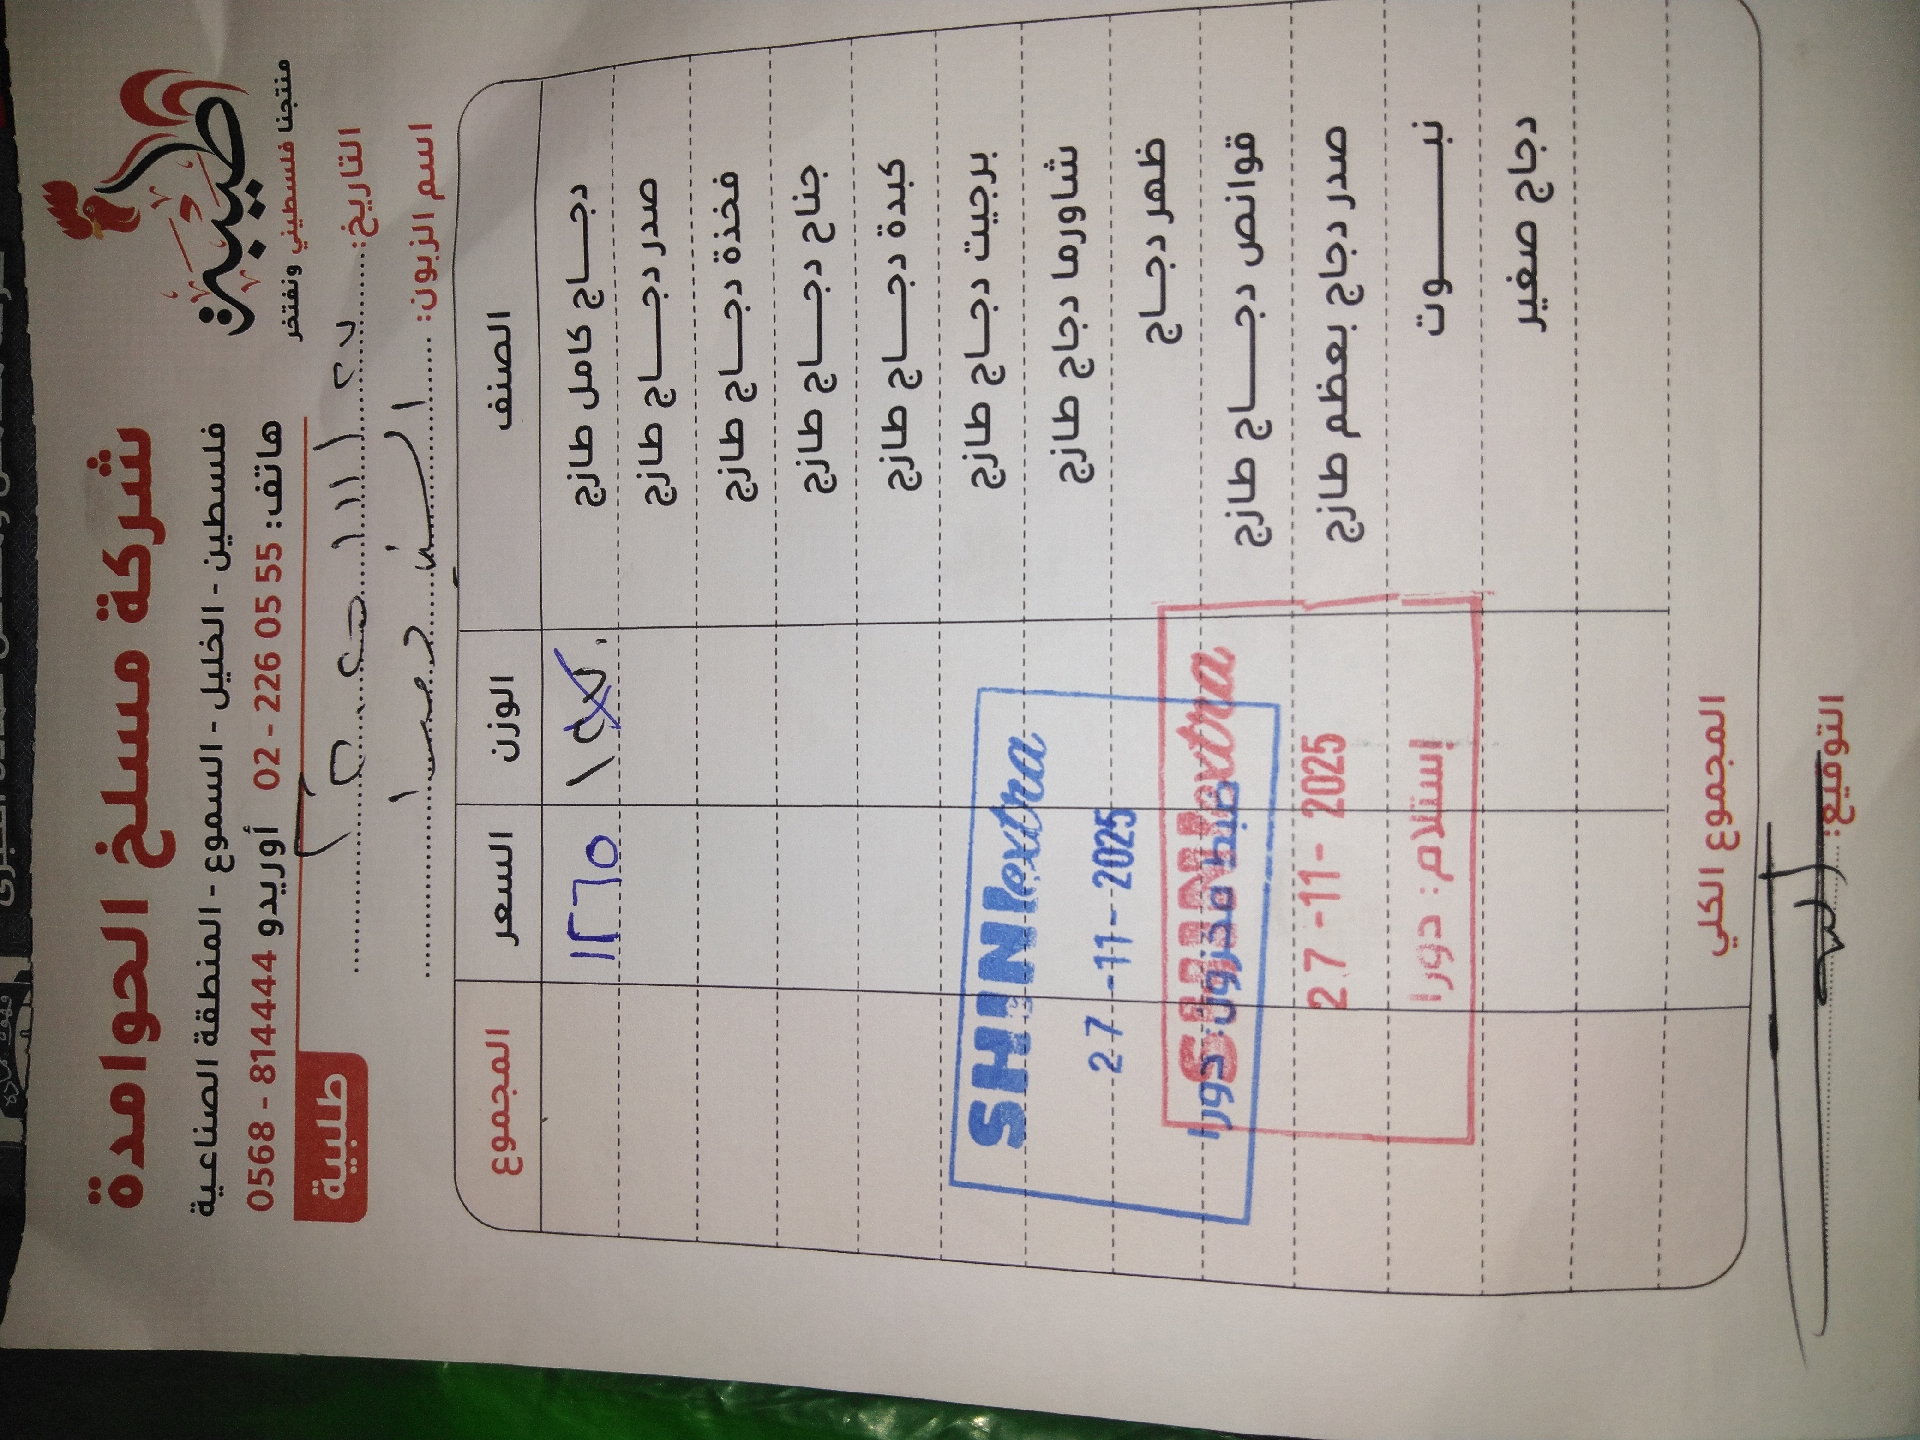 طيبة
منتجنا فلسطيني ونفتخر
شركة مسلخ الحوامدة
فلسطين - الخليل - السموع - المنطقة الصناعية
هاتف: 02 - 226 05 55 أوريدو 0568 - 814444
طلبية
التاريخ:
اسم الزبون:
الصنف الوزن السعر المجموع
دجاج كامل طازج ١٢٦٥
صدر دجاج طازج
فخذة دجاج طازج
جناح دجاج طازج
كبدة دجاج طازج
برجيت دجاج طازج
شاورما دجاج طازج
ظهر دجاج
قوانص دجاج طازج
صدر دجاج بعظم طازج
نبوت
دجاج صغير
SHINI extra
27 -11- 2025
ضبط مخزون: دورا
SHINI extra
27 -11- 2025
إستلام: دورا
المجموع الكلي
التوقيع: